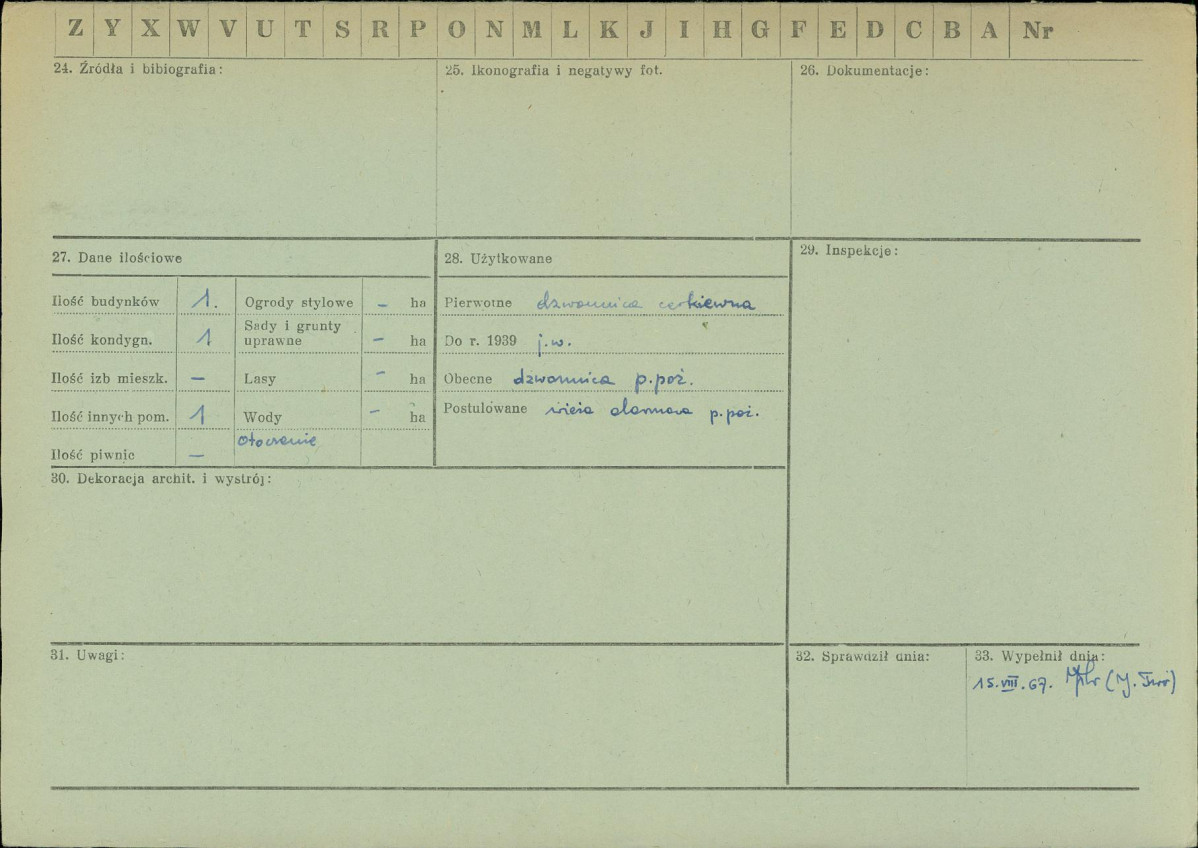 Z Y X W V U T S R P O N M L K J I H G F E D C B A Nr
24. Źródła i bibiografia:
25. Ikonografia i negatywy fot.
26. Dokumentacje:
27. Dane ilościowe
Ilość budynków 1. Ogrody stylowe – ha
Ilość kondygn. 1 Sady i grunty uprawne – ha
Ilość izb mieszk. – Lasy – ha
Ilość innych pom. 1 Wody – ha
Ilość piwnic – otoczenie
28. Użytkowane
Pierwotne dzwonnica cerkiewna
Do r. 1939 j.w.
Obecne dzwonnica p.poż.
Postulowane wieża alarmowa p.poż.
29. Inspekcje:
30. Dekoracja archit. i wystrój:
31. Uwagi:
32. Sprawdził dnia:
33. Wypełnił dnia:
15.VIII.67.